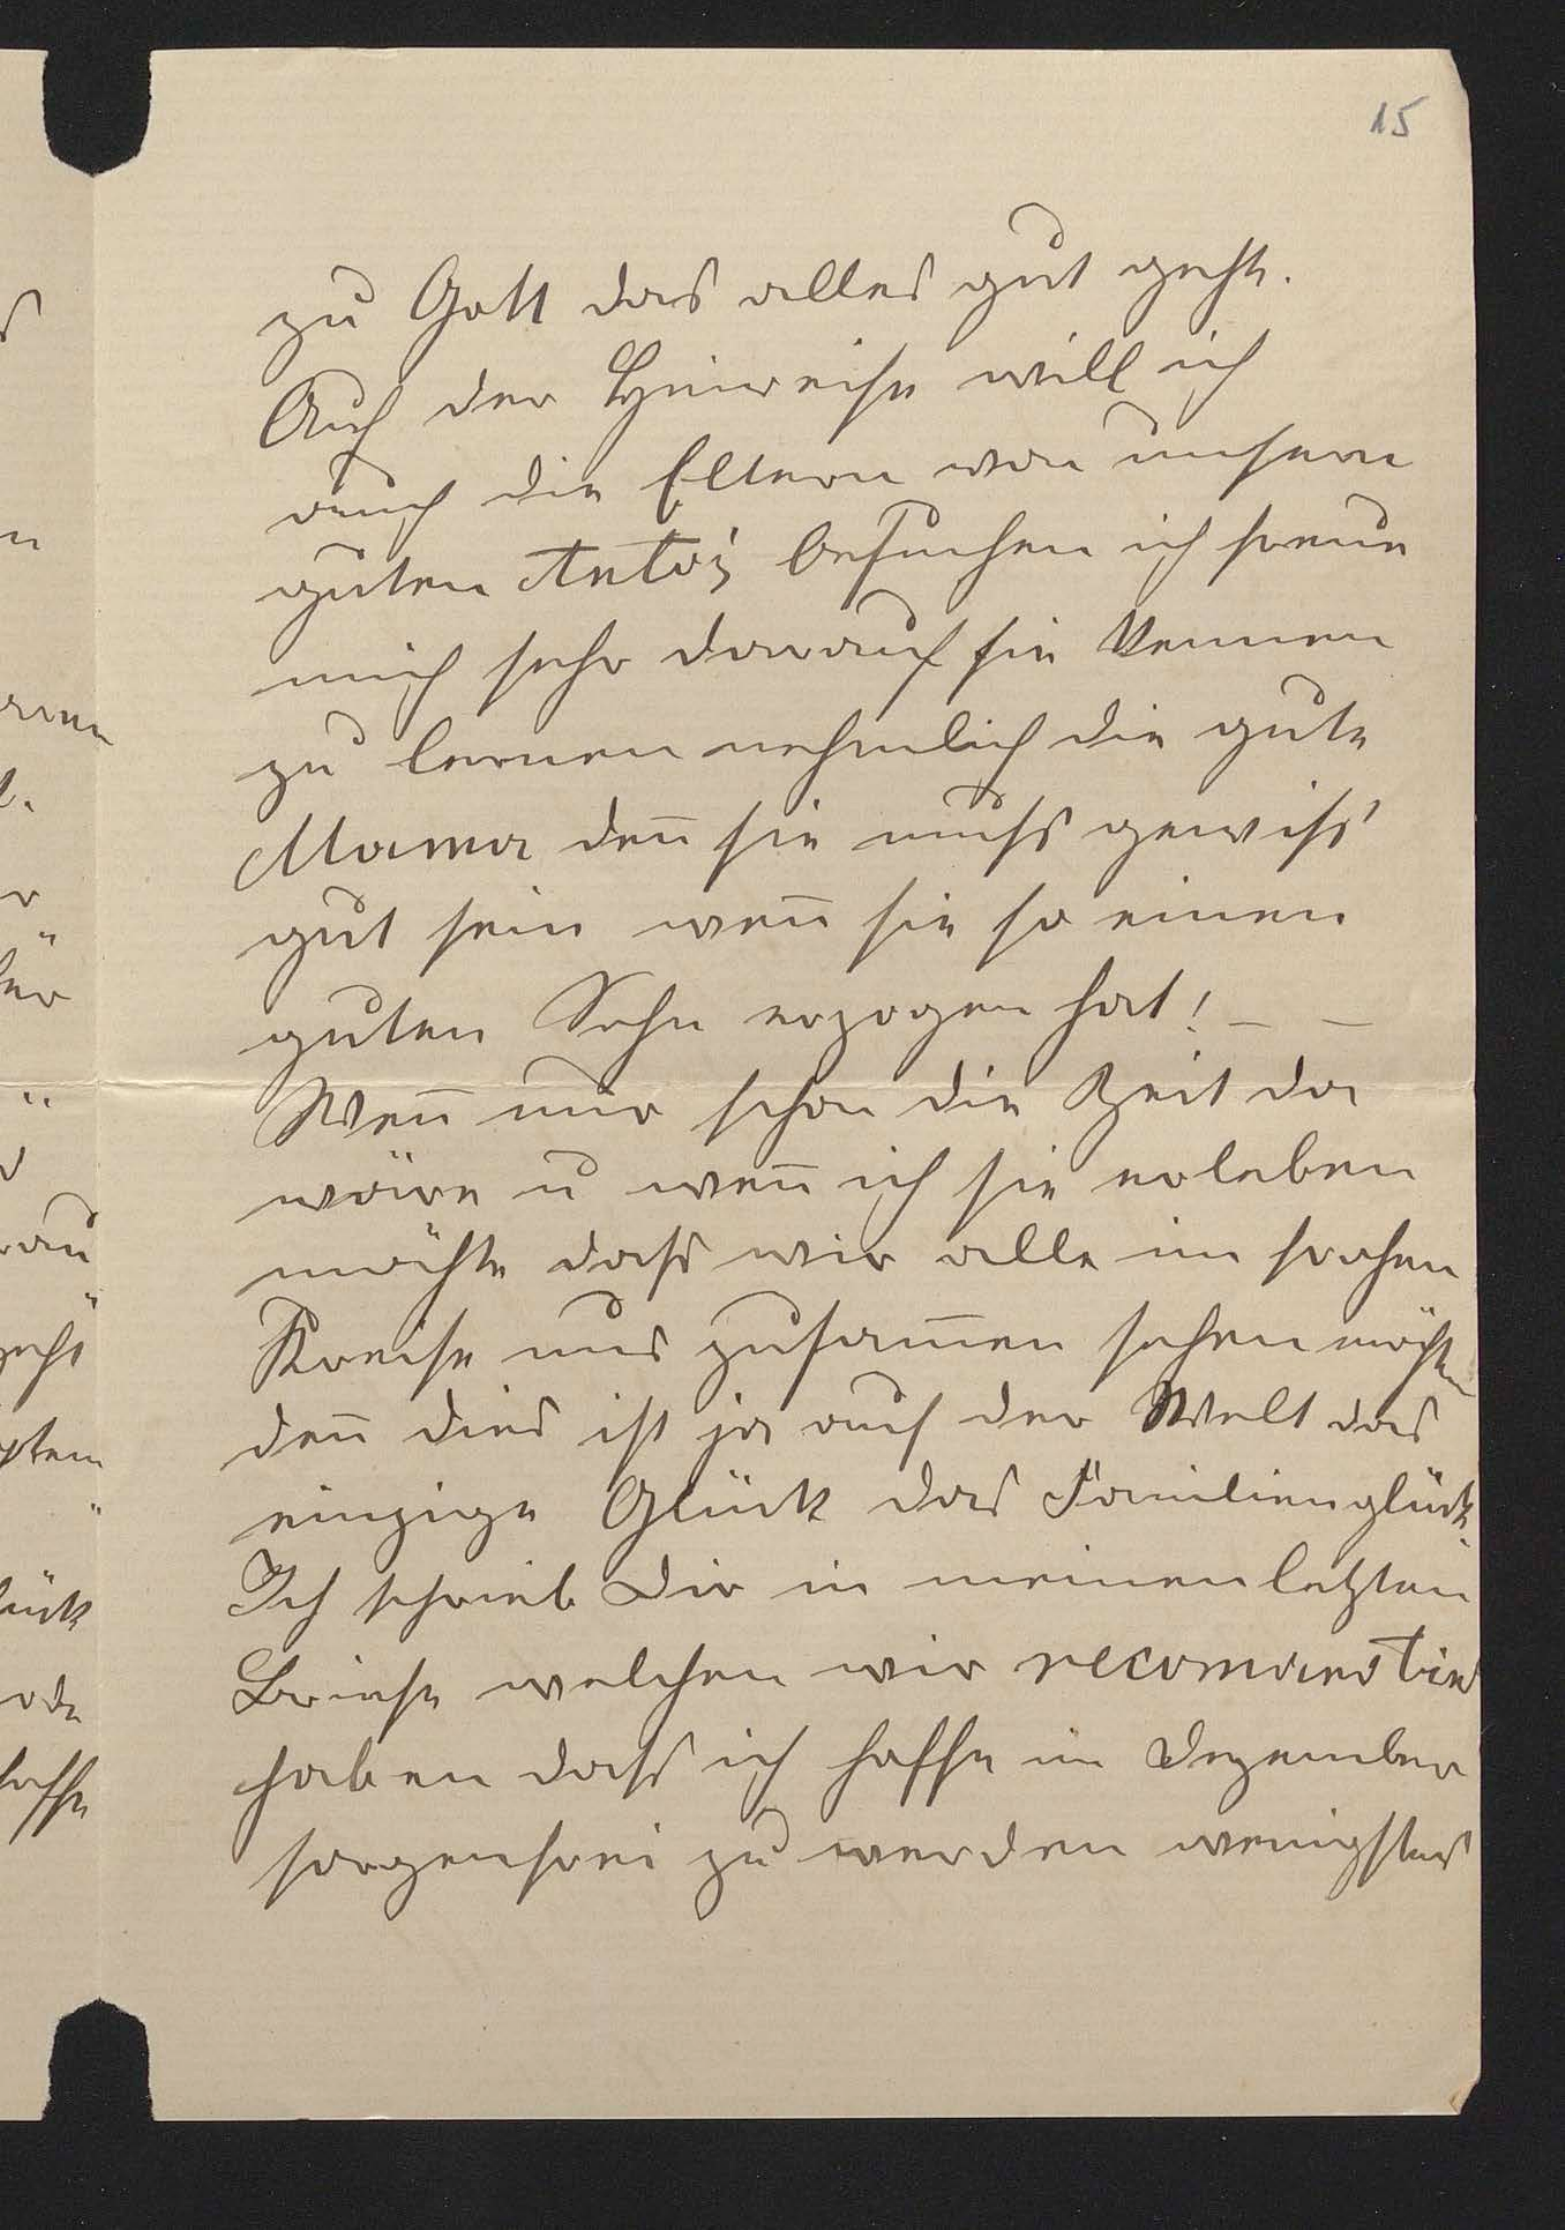 15
zu Gott das alles gut geht.
Auf der Hinreise will ich
auch die Eltern von unsern
guten Antoś besuchen ich freue
mich sehr darauf sie kennen
zu lernen nehmlich die gute
Mama den̄ sie muss gewiss
gut sein wen̄ sie so einen
guten Sohn erzogen hat! – –
Wen̄ nur schon die Zeit da
wäre u wen̄ ich sie erleben
möchte dass wir alle im frohen
Kreise uns zusam̄en sehen möchten
den̄ dies ist ja auf der Welt das
einzige Glück das Familienglück.
Ich schrieb Dir in meinen letzten
Briefe welchen wir recomandird
haben dass ich hoffe im Dezember
sorgenfrei zu werden wenigstens